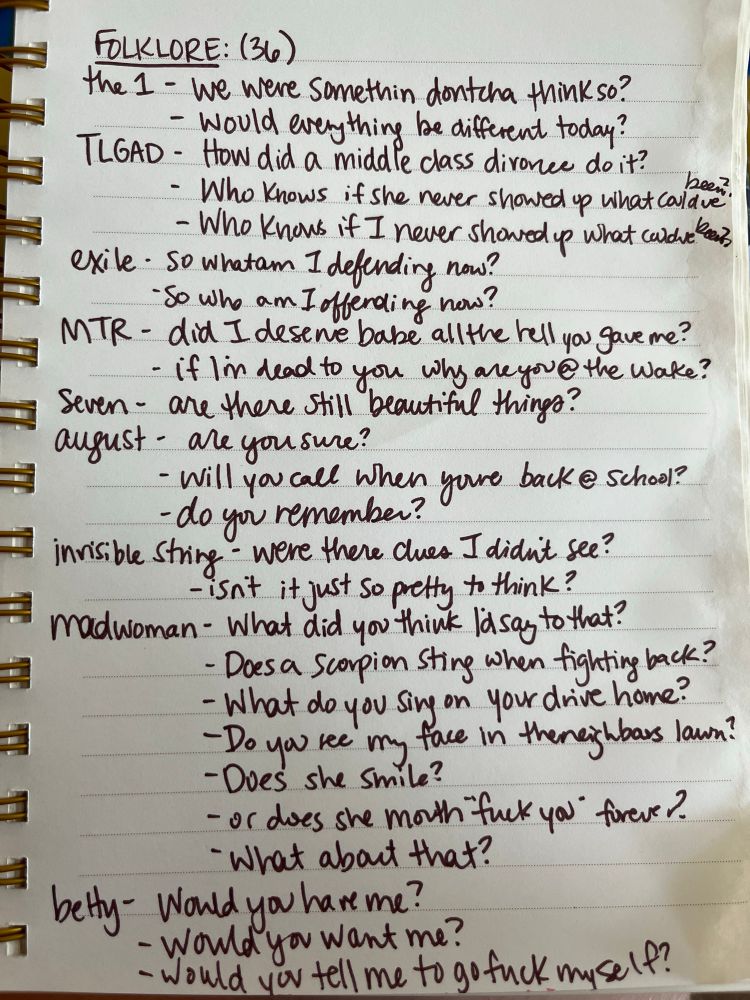 FOLKLORE: (36)
the 1 - we were somethin dontcha think so?
- would everything be different today?
TLGAD - How did a middle class divorcee do it?
- Who knows if she never showed up what couldve been?
- Who knows if I never showed up what couldve been?
exile - so what am I defending now?
- So who am I offending now?
MTR - did I deserve babe all the hell you gave me?
- if I'm dead to you why are you @ the wake?
Seven - are there still beautiful things?
august - are you sure?
- will you call when youre back @ school?
- do you remember?
invisible string - were there clues I didn't see?
- isn't it just so pretty to think?
madwoman - What did you think I'd say to that?
- Does a scorpion sting when fighting back?
- What do you sing on your drive home?
- Do you see my face in the neighbors lawn?
- Does she smile?
- or does she mouth "fuck you" forever?
- What about that?
betty - Would you have me?
- Would you want me?
- Would you tell me to go fuck myself?